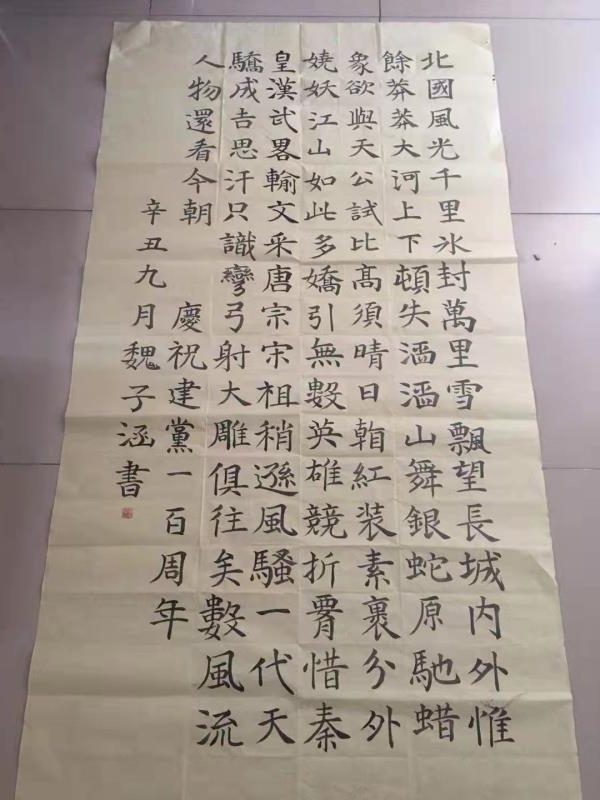 北國風光千里冰封萬里雪飄望長城内外惟
餘莽莽大河上下頓失滔滔山舞銀蛇原馳蜡
象欲與天公試比高須晴日紅装素裹分外
嬈妖江山如此多嬌引無數英雄競折惜秦
皇漢武畧輸文采唐宗宋祖稍遜風騷一代天
驕成吉思汗只識彎弓射大雕俱往矣數風流
人物還看今朝
慶祝建黨一百周年
辛丑九月魏子涵書